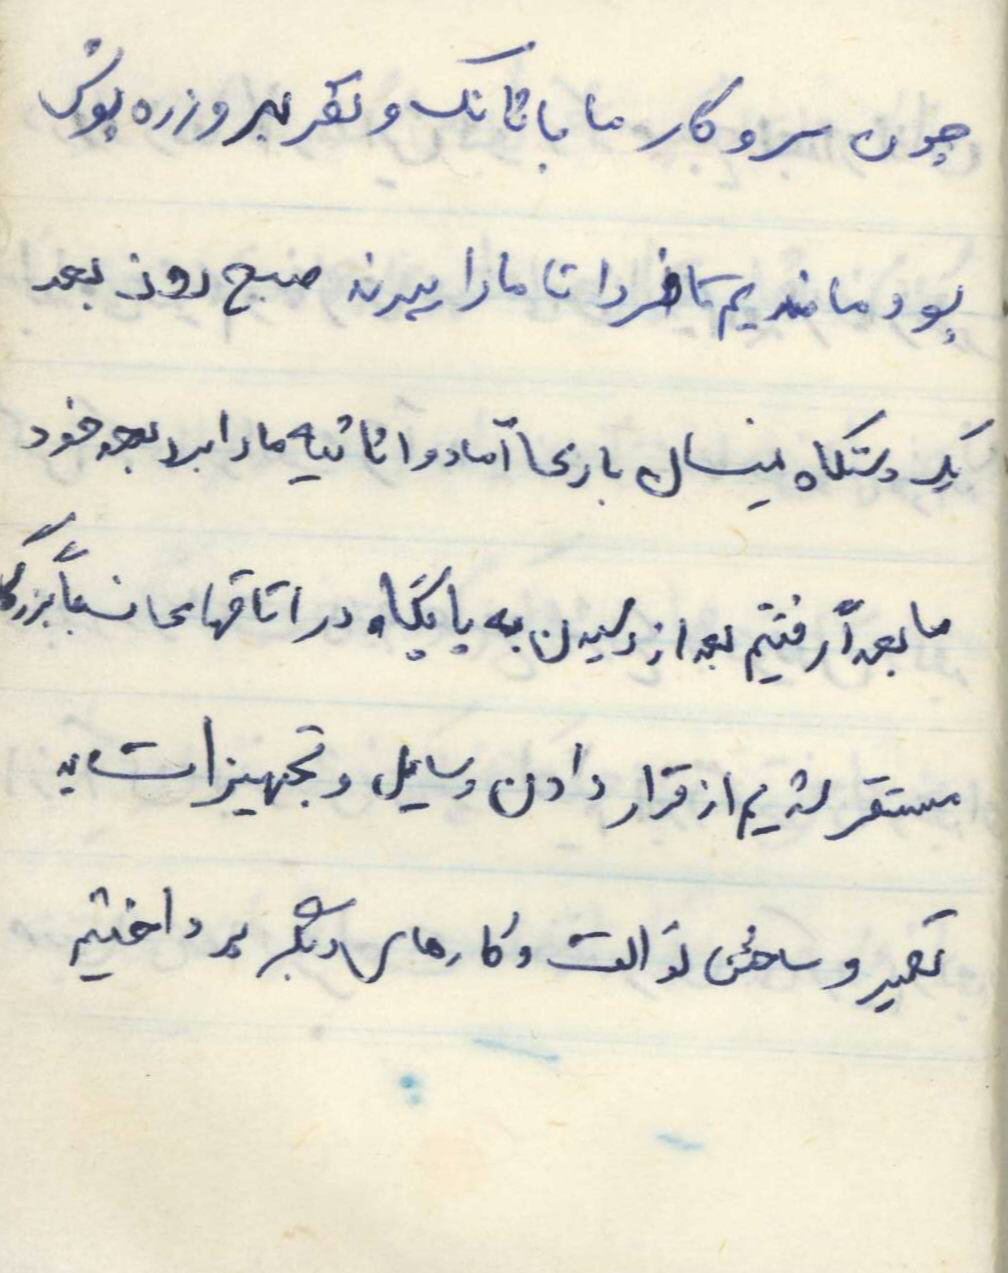 چون سر و کار ما با تانک و نفربر و زره پوش
بود ماندیم تا فردا تا ما را ببرند صبح روز بعد
یک دستگاه نیسان باری آمد و اثاثیه ما را برد بعد خود
ما بعداً رفتیم بعد از رسیدن به پایگاه در اتاقهای نسبتاً بزرگی
مستقر شدیم از قرار دادن وسایل و تجهیزات به
تعمیر و ساختن توالت و کارهای دیگر پرداختیم